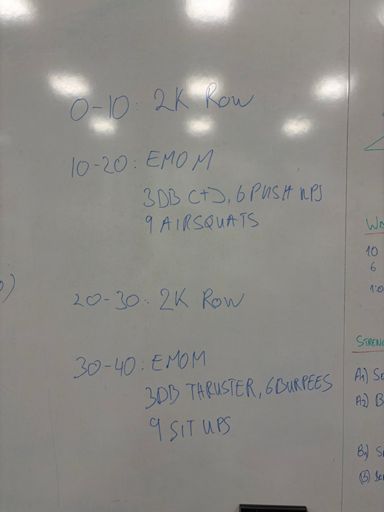 0-10: 2K Row
10-20: EMOM
3DB C+J, 6 PUSH UPS
9 AIRSQUATS
20-30: 2K Row
30-40: EMOM
3DB THRUSTER, 6 BURPEES
9 SIT UPS
10
6
A1)
A2) B
B1)